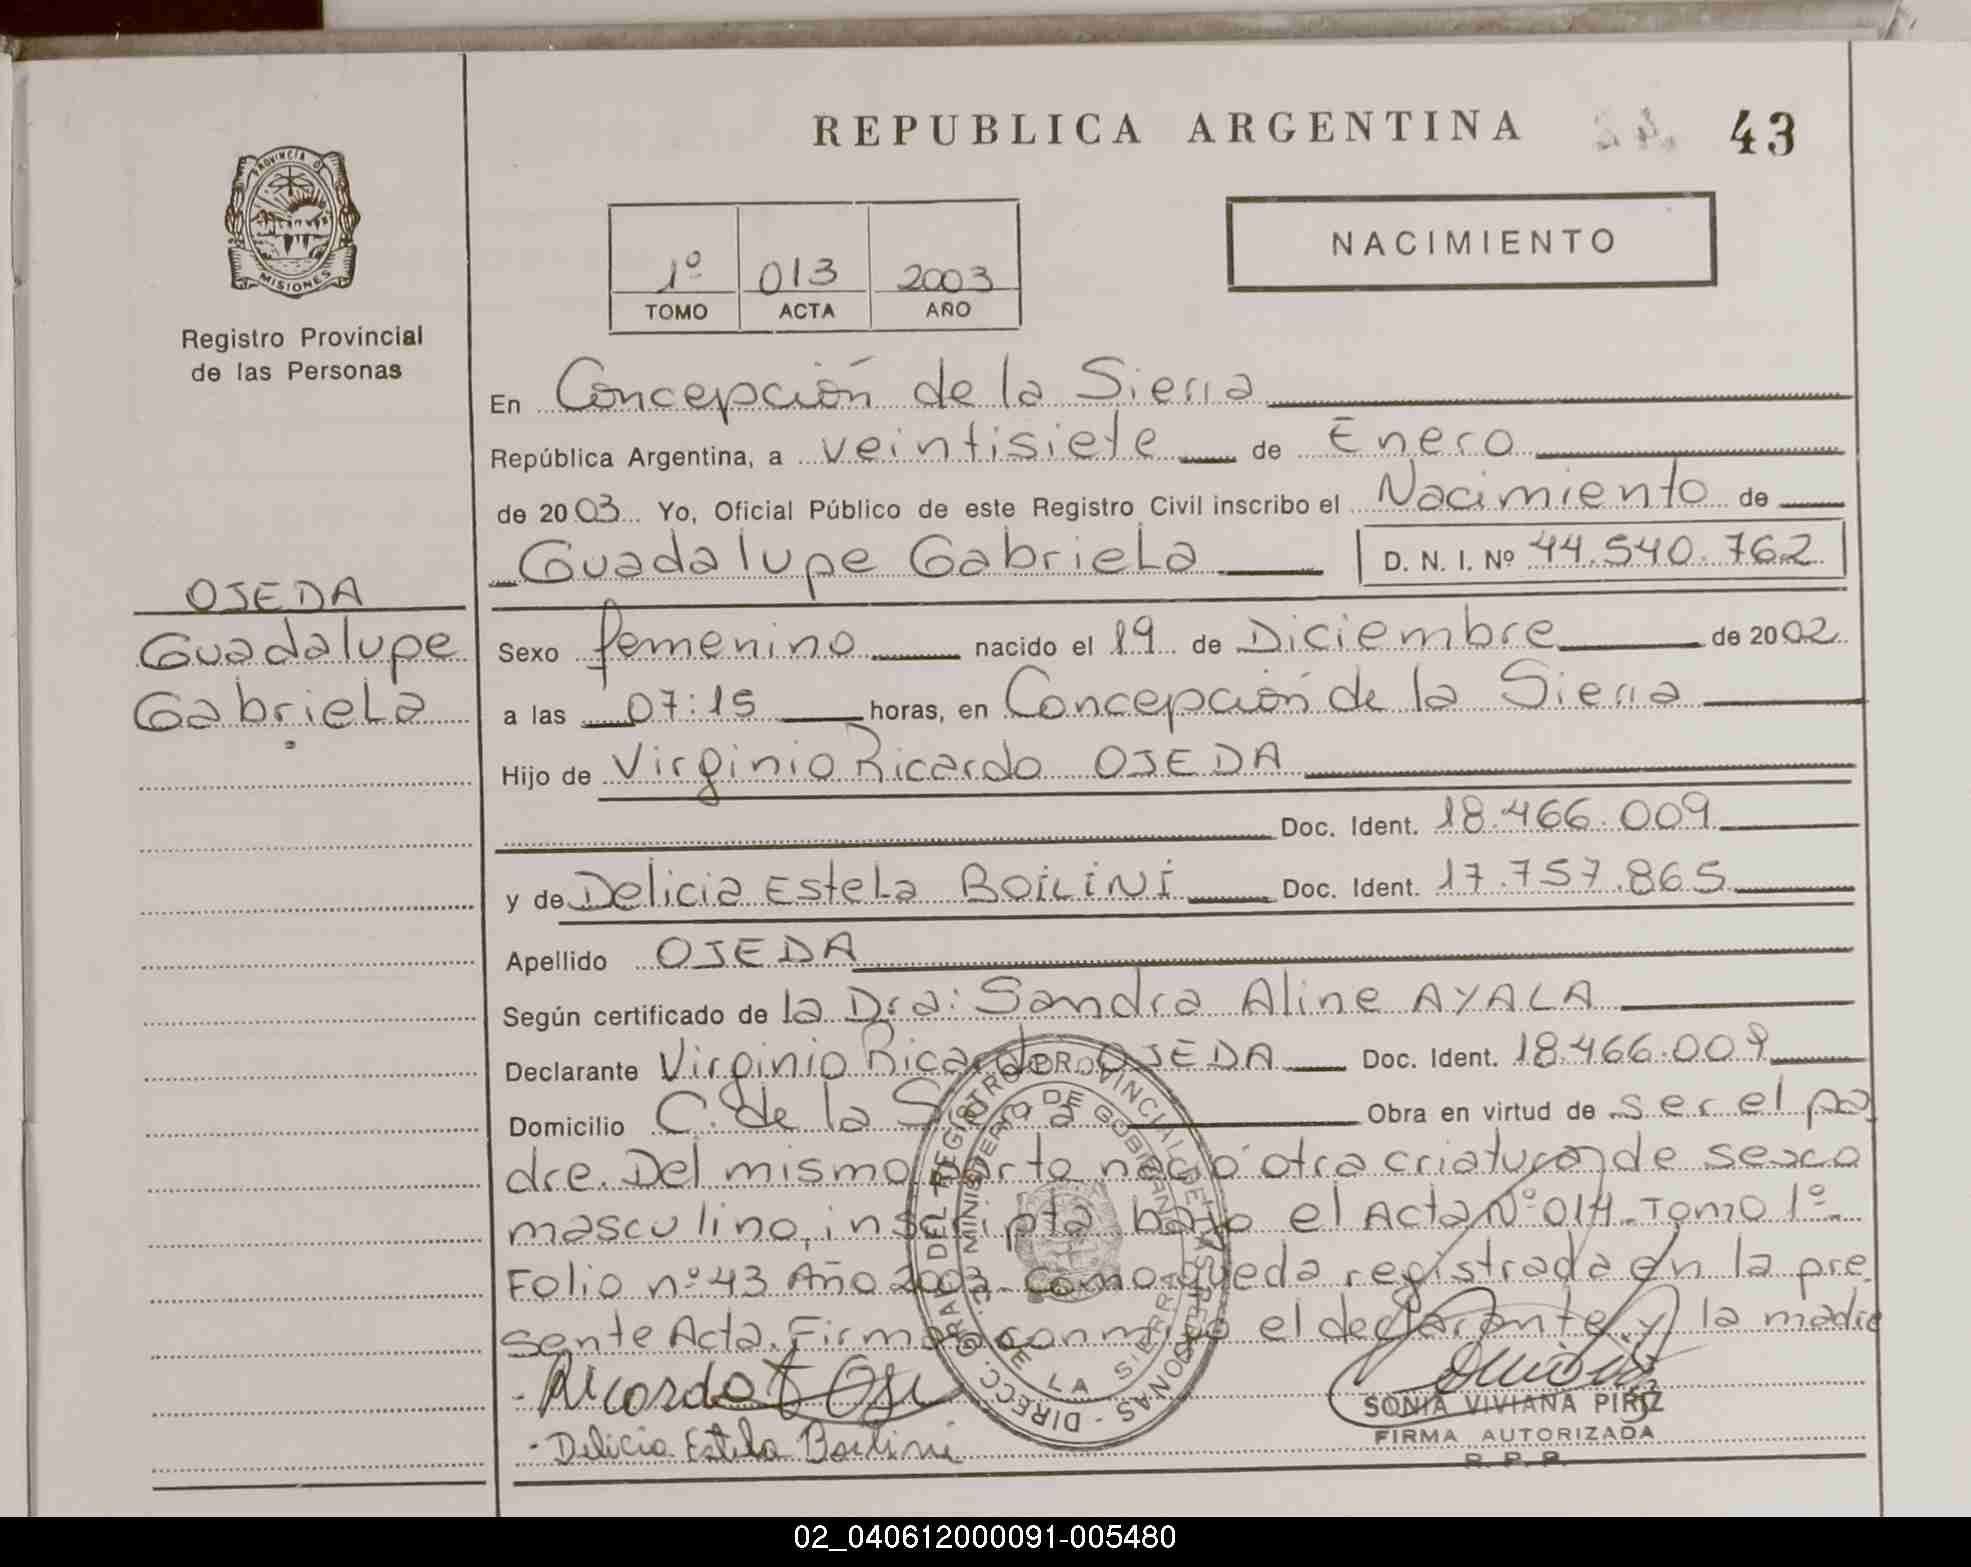 REPUBLICA ARGENTINA 43
PROVINCIA DE
MISIONES
Registro Provincial
de las Personas
1º 013 2003
TOMO ACTA AÑO
NACIMIENTO
En Concepción de la Sierra
República Argentina, a veintisiete de Enero
de 2003 Yo, Oficial Público de este Registro Civil inscribo el Nacimiento de
Guadalupe Gabriela D. N. I. Nº 44.540.762
OJEDA
Guadalupe
Gabriela
Sexo femenino nacido el 19 de Diciembre de 2002
a las 07:15 horas, en Concepción de la Sierra
Hijo de Virginio Ricardo OJEDA
Doc. Ident. 18.466.009
y de Delicia Estela BOiLiNi Doc. Ident. 17.757.865
Apellido OJEDA
Según certificado de la Dra: Sandra Aline AYALA
Declarante Virginio Ricardo OJEDA Doc. Ident. 18.466.009
Domicilio C. de la Sierra Obra en virtud de ser el pa
dre. Del mismo parto nació otra criatura de sexo
masculino, inscripta bajo el Acta Nº 014 - Tomo 1º -
Folio nº 43 Año 2003 - como queda registrada en la pre
sente Acta. Firman conmigo el declarante y la madre
- Ricardo Oje
- Delicia Estela Boilini
DIRECC. GRAL. DEL REGISTRO PROVINCIAL DE LAS PERSONAS -
MINISTERIO DE GOBIERNO
DE LA SIERRA
SONIA VIVIANA PIRIZ
FIRMA AUTORIZADA
R. P. P.
02_040612000091-005480